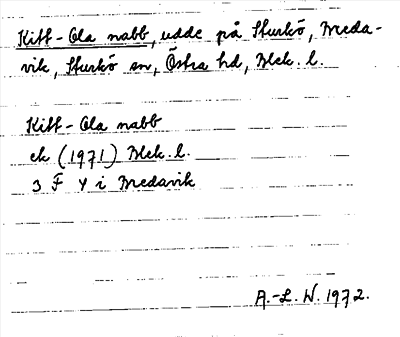 Kitt-Ola nabb, udde på Sturkö, Breda-
vik, Sturkö sn, Östra hd, Blek. l.
Kitt-Ola nabb
ek (1971) Blek. l.
3 F Y i Bredavik
A.-L. W. 1972.